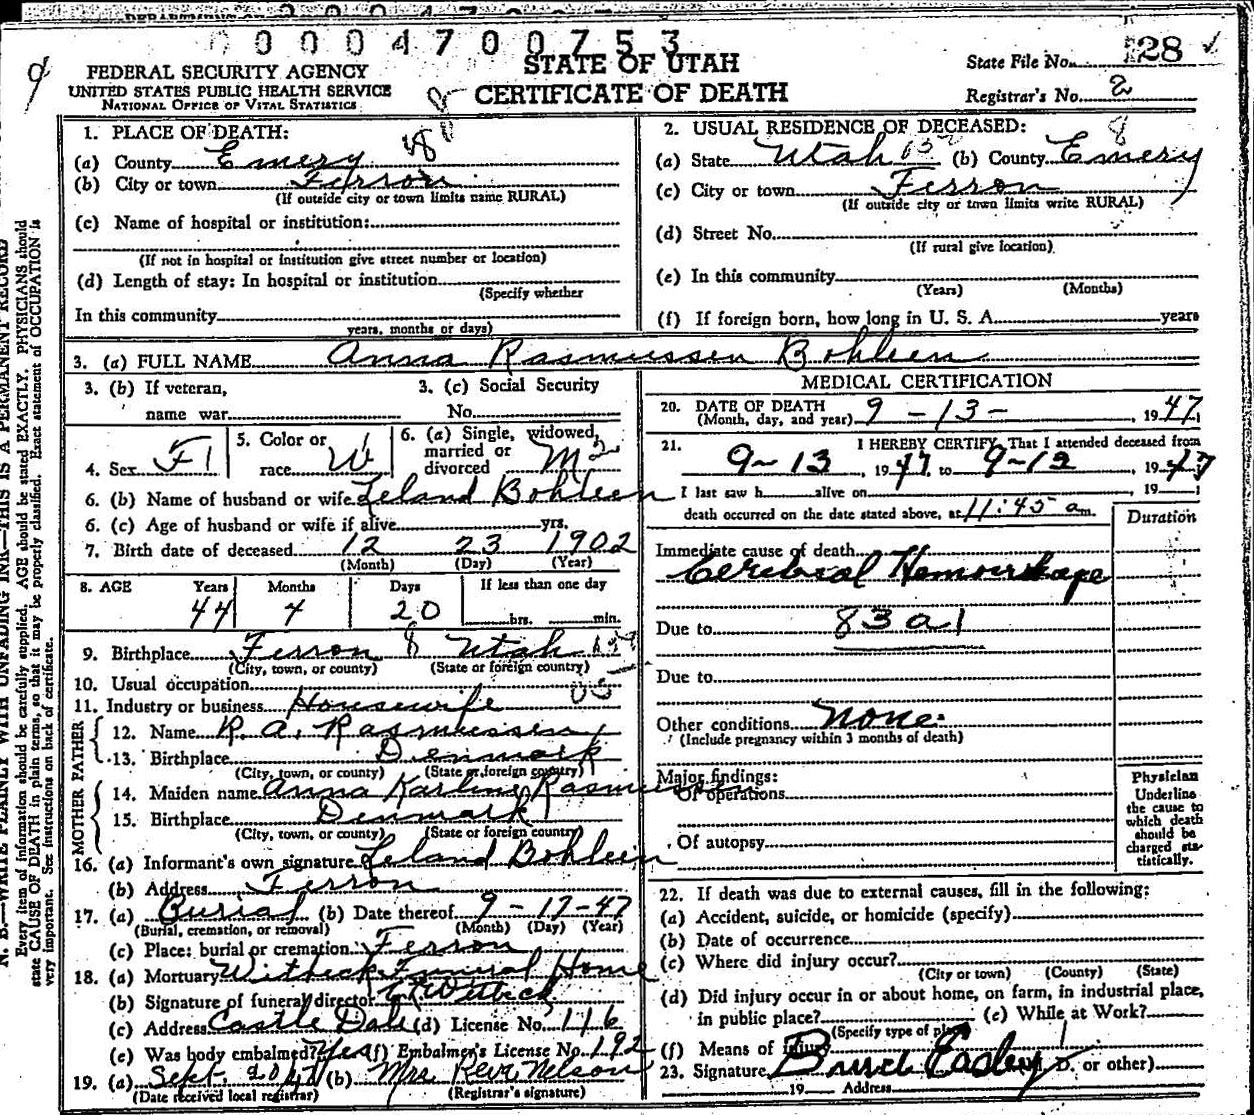 0004700753
STATE OF UTAH
CERTIFICATE OF DEATH
FEDERAL SECURITY AGENCY
UNITED STATES PUBLIC HEALTH SERVICE
NATIONAL OFFICE OF VITAL STATISTICS
State File No. 28
Registrar's No. 2
1. PLACE OF DEATH:
(a) County Emery 8
(b) City or town Ferron
(If outside city or town limits name RURAL)
(c) Name of hospital or institution:
(If not in hospital or institution give street number or location)
(d) Length of stay: In hospital or institution
(Specify whether
In this community
years, months or days)
2. USUAL RESIDENCE OF DECEASED: 8
(a) State Utah (b) County Emery
(c) City or town Ferron
(If outside city or town limits write RURAL)
(d) Street No.
(If rural give location)
(e) In this community
(Years) (Months)
(f) If foreign born, how long in U. S. A. years
3. (a) FULL NAME Anna Rasmussen Bohleen
3. (b) If veteran,
name war
3. (c) Social Security
No.
4. Sex F
5. Color or
race W
6. (a) Single, widowed,
married or
divorced M 2
6. (b) Name of husband or wife Leland Bohleen
6. (c) Age of husband or wife if alive yrs.
7. Birth date of deceased 12 23 1902
(Month) (Day) (Year)
8. AGE Years Months Days If less than one day
44 4 20 hrs. min.
9. Birthplace Ferron 8 Utah
(City, town, or county) (State or foreign country)
10. Usual occupation
11. Industry or business Housewife
FATHER
12. Name R. A. Rasmussen
13. Birthplace Denmark
(City, town, or county) (State or foreign country)
MOTHER
14. Maiden name Anna Karline Rasmussen
15. Birthplace Denmark
(City, town, or county) (State or foreign country)
16. (a) Informant's own signature Leland Bohleen
(b) Address Ferron
17. (a) Burial (b) Date thereof 9-17-47
(Burial, cremation, or removal) (Month) (Day) (Year)
(c) Place: burial or cremation Ferron
18. (a) Mortuary Witbeck Funeral Home
(b) Signature of funeral director Witbeck
(c) Address Castle Dale (d) License No. 116
(e) Was body embalmed? Yes (f) Embalmer's License No. 192
19. (a) Sept. 20 47 (b) Mrs Reva Nelson
(Date received local registrar) (Registrar's signature)
MEDICAL CERTIFICATION
20. DATE OF DEATH
(Month, day, and year) 9-13- , 1947
21. I HEREBY CERTIFY, That I attended deceased from
9-13, 1947 to 9-13, 1947
I last saw h alive on , 19
death occurred on the date stated above, at 11:45 a m.
Duration
Immediate cause of death
Cerebral Hemorrhage
Due to 83a1
Due to
Other conditions none
(Include pregnancy within 3 months of death)
Major findings:
Of operations
Of autopsy
Physician
Underline
the cause to
which death
should be
charged sta-
tistically.
22. If death was due to external causes, fill in the following:
(a) Accident, suicide, or homicide (specify)
(b) Date of occurrence
(c) Where did injury occur?
(City or town) (County) (State)
(d) Did injury occur in or about home, on farm, in industrial place,
in public place? (e) While at Work?
(Specify type of place)
(f) Means of injury
23. Signature Bruce Easley D. or other)
19 Address
N. B.—WRITE PLAINLY WITH UNFADING INK—THIS IS A PERMANENT RECORD
Every item of information should be carefully supplied. AGE should be stated EXACTLY. PHYSICIANS should
state CAUSE OF DEATH in plain terms, so that it may be properly classified. Exact statement of OCCUPATION is
very important. See instructions on back of certificate.